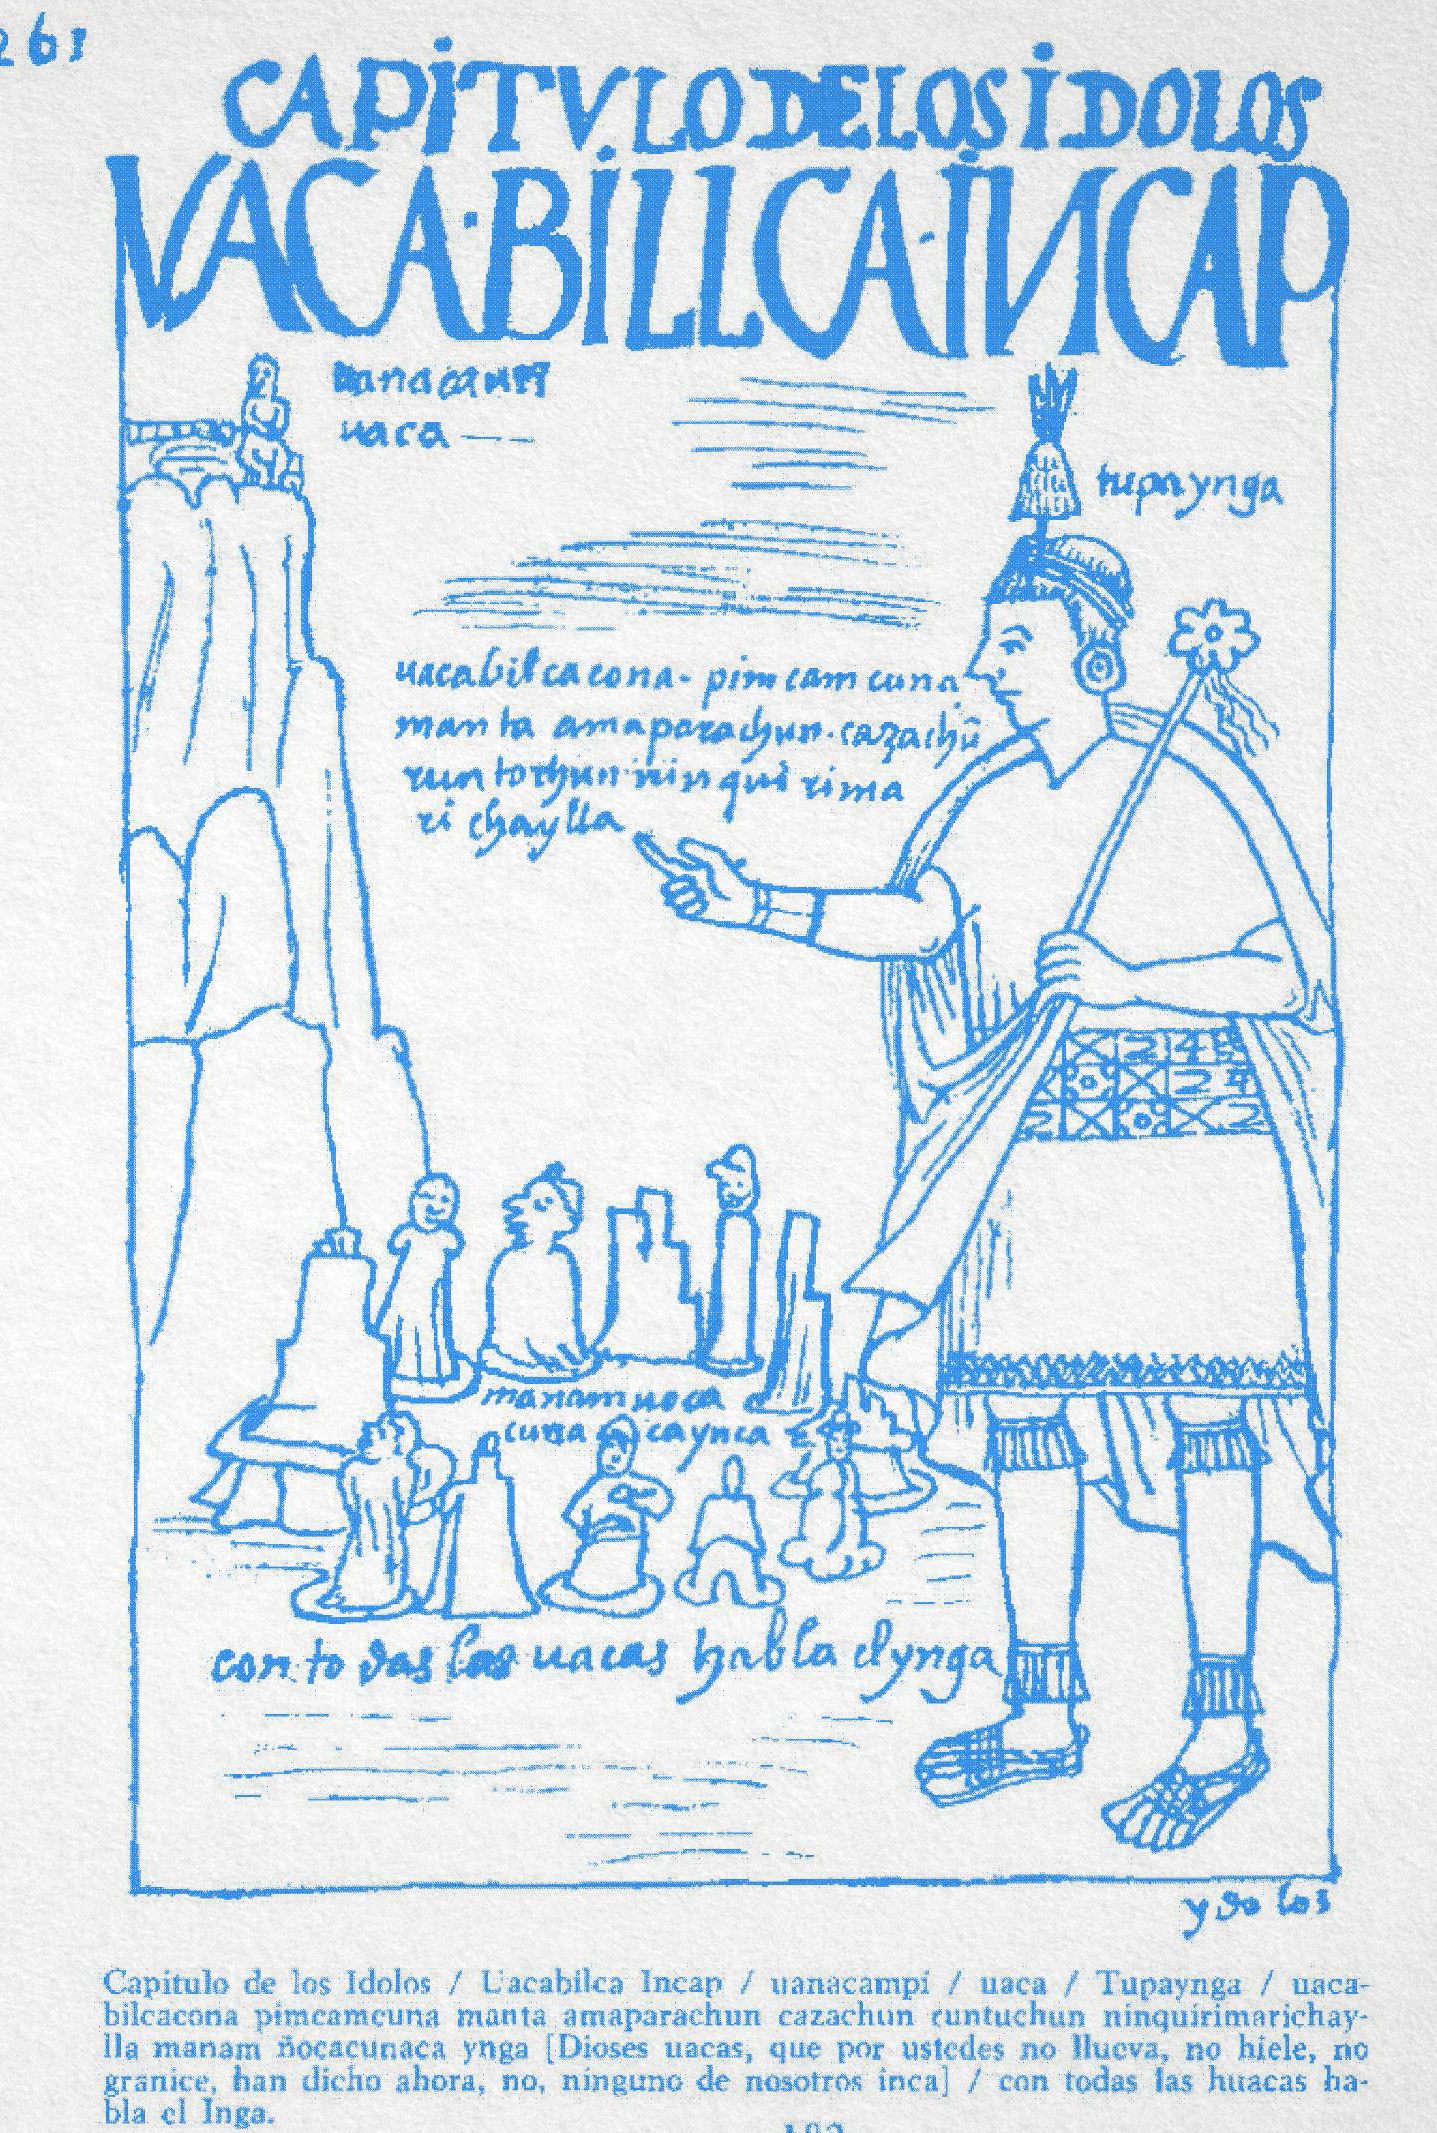 261
CAPiTVLO DE LOS iDOLOS
VACA·BiLLCA·iNCAP
uanacauri
uaca
tupa ynga
uacabilcacona· pim cam cuna
manta ama parachun· cazachũ
runtochun ninqui rima
ri chaylla
manam uaca
cuna caynca
2 4
2 4
2 2
con todas las uacas habla el ynga
ydolos
Capitulo de los Idolos / Uacabilca Incap / uanacampi / uaca / Tupaynga / uaca-
bilcacona pimcamcuna manta amaparachun cazachun cuntuchun ninquirimarichay-
lla manam ñocacunaca ynga [Dioses uacas, que por ustedes no llueva, no hiele, no
granice, han dicho ahora, no, ninguno de nosotros inca] / con todas las huacas ha-
bla el Inga.